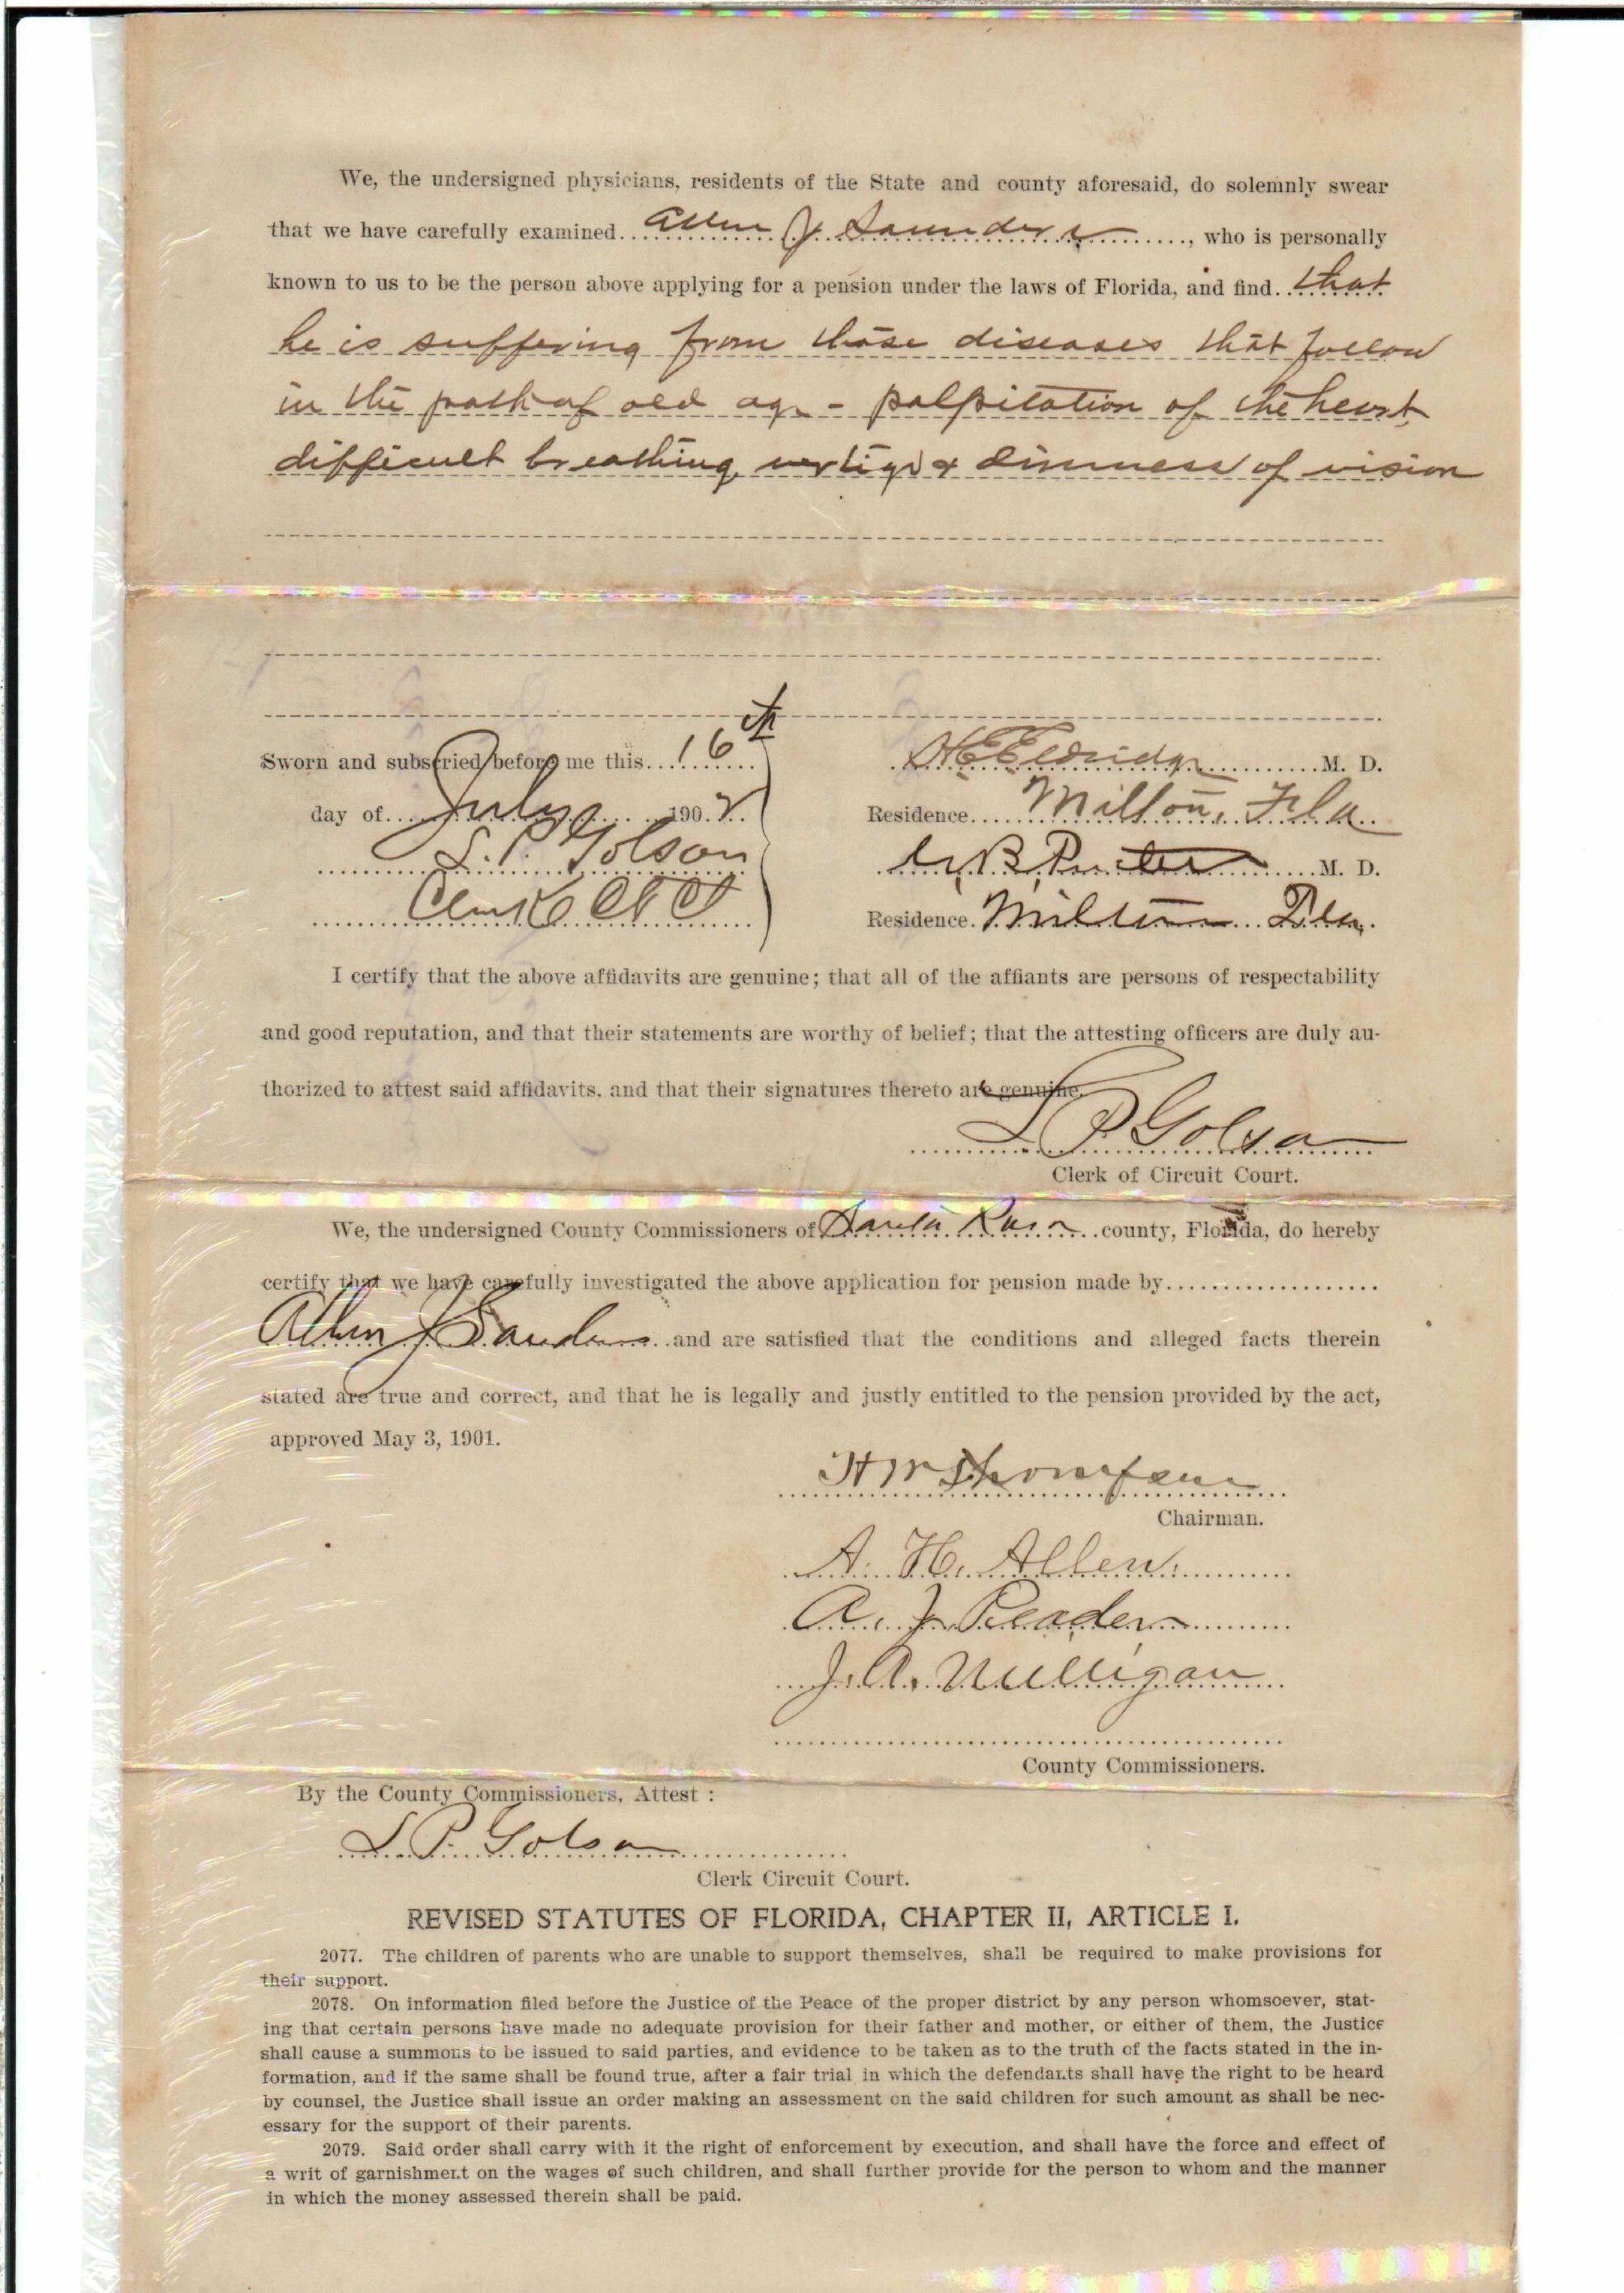 We, the undersigned physicians, residents of the State and county aforesaid, do solemnly swear
that we have carefully examined Allen J Saunders, who is personally
known to us to be the person above applying for a pension under the laws of Florida, and find that
he is suffering from those diseases that follow
in the path of old age - palpitation of the heart,
difficult breathing, vertigo & dimness of vision
Sworn and subscried before me this 16th
day of July 1902
S. P. Golson
Clerk Ct Ct
H E Eldridge M. D.
Residence Milton, Fla
B Porter M. D.
Residence Milton Fla.
I certify that the above affidavits are genuine; that all of the affiants are persons of respectability
and good reputation, and that their statements are worthy of belief; that the attesting officers are duly au-
thorized to attest said affidavits, and that their signatures thereto are genuine.
S P Golson
Clerk of Circuit Court.
We, the undersigned County Commissioners of Santa Rosa county, Florida, do hereby
certify that we have carefully investigated the above application for pension made by
Allen J Sanders and are satisfied that the conditions and alleged facts therein
stated are true and correct, and that he is legally and justly entitled to the pension provided by the act,
approved May 3, 1901.
H W Thompson
Chairman.
A. H. Allen
A. J. Reader
J. A. Mulligan
County Commissioners.
By the County Commissioners, Attest :
S P. Golson
Clerk Circuit Court.
REVISED STATUTES OF FLORIDA, CHAPTER II, ARTICLE I.
2077. The children of parents who are unable to support themselves, shall be required to make provisions for
their support.
2078. On information filed before the Justice of the Peace of the proper district by any person whomsoever, stat-
ing that certain persons have made no adequate provision for their father and mother, or either of them, the Justice
shall cause a summons to be issued to said parties, and evidence to be taken as to the truth of the facts stated in the in-
formation, and if the same shall be found true, after a fair trial in which the defendants shall have the right to be heard
by counsel, the Justice shall issue an order making an assessment on the said children for such amount as shall be nec-
essary for the support of their parents.
2079. Said order shall carry with it the right of enforcement by execution, and shall have the force and effect of
a writ of garnishment on the wages of such children, and shall further provide for the person to whom and the manner
in which the money assessed therein shall be paid.